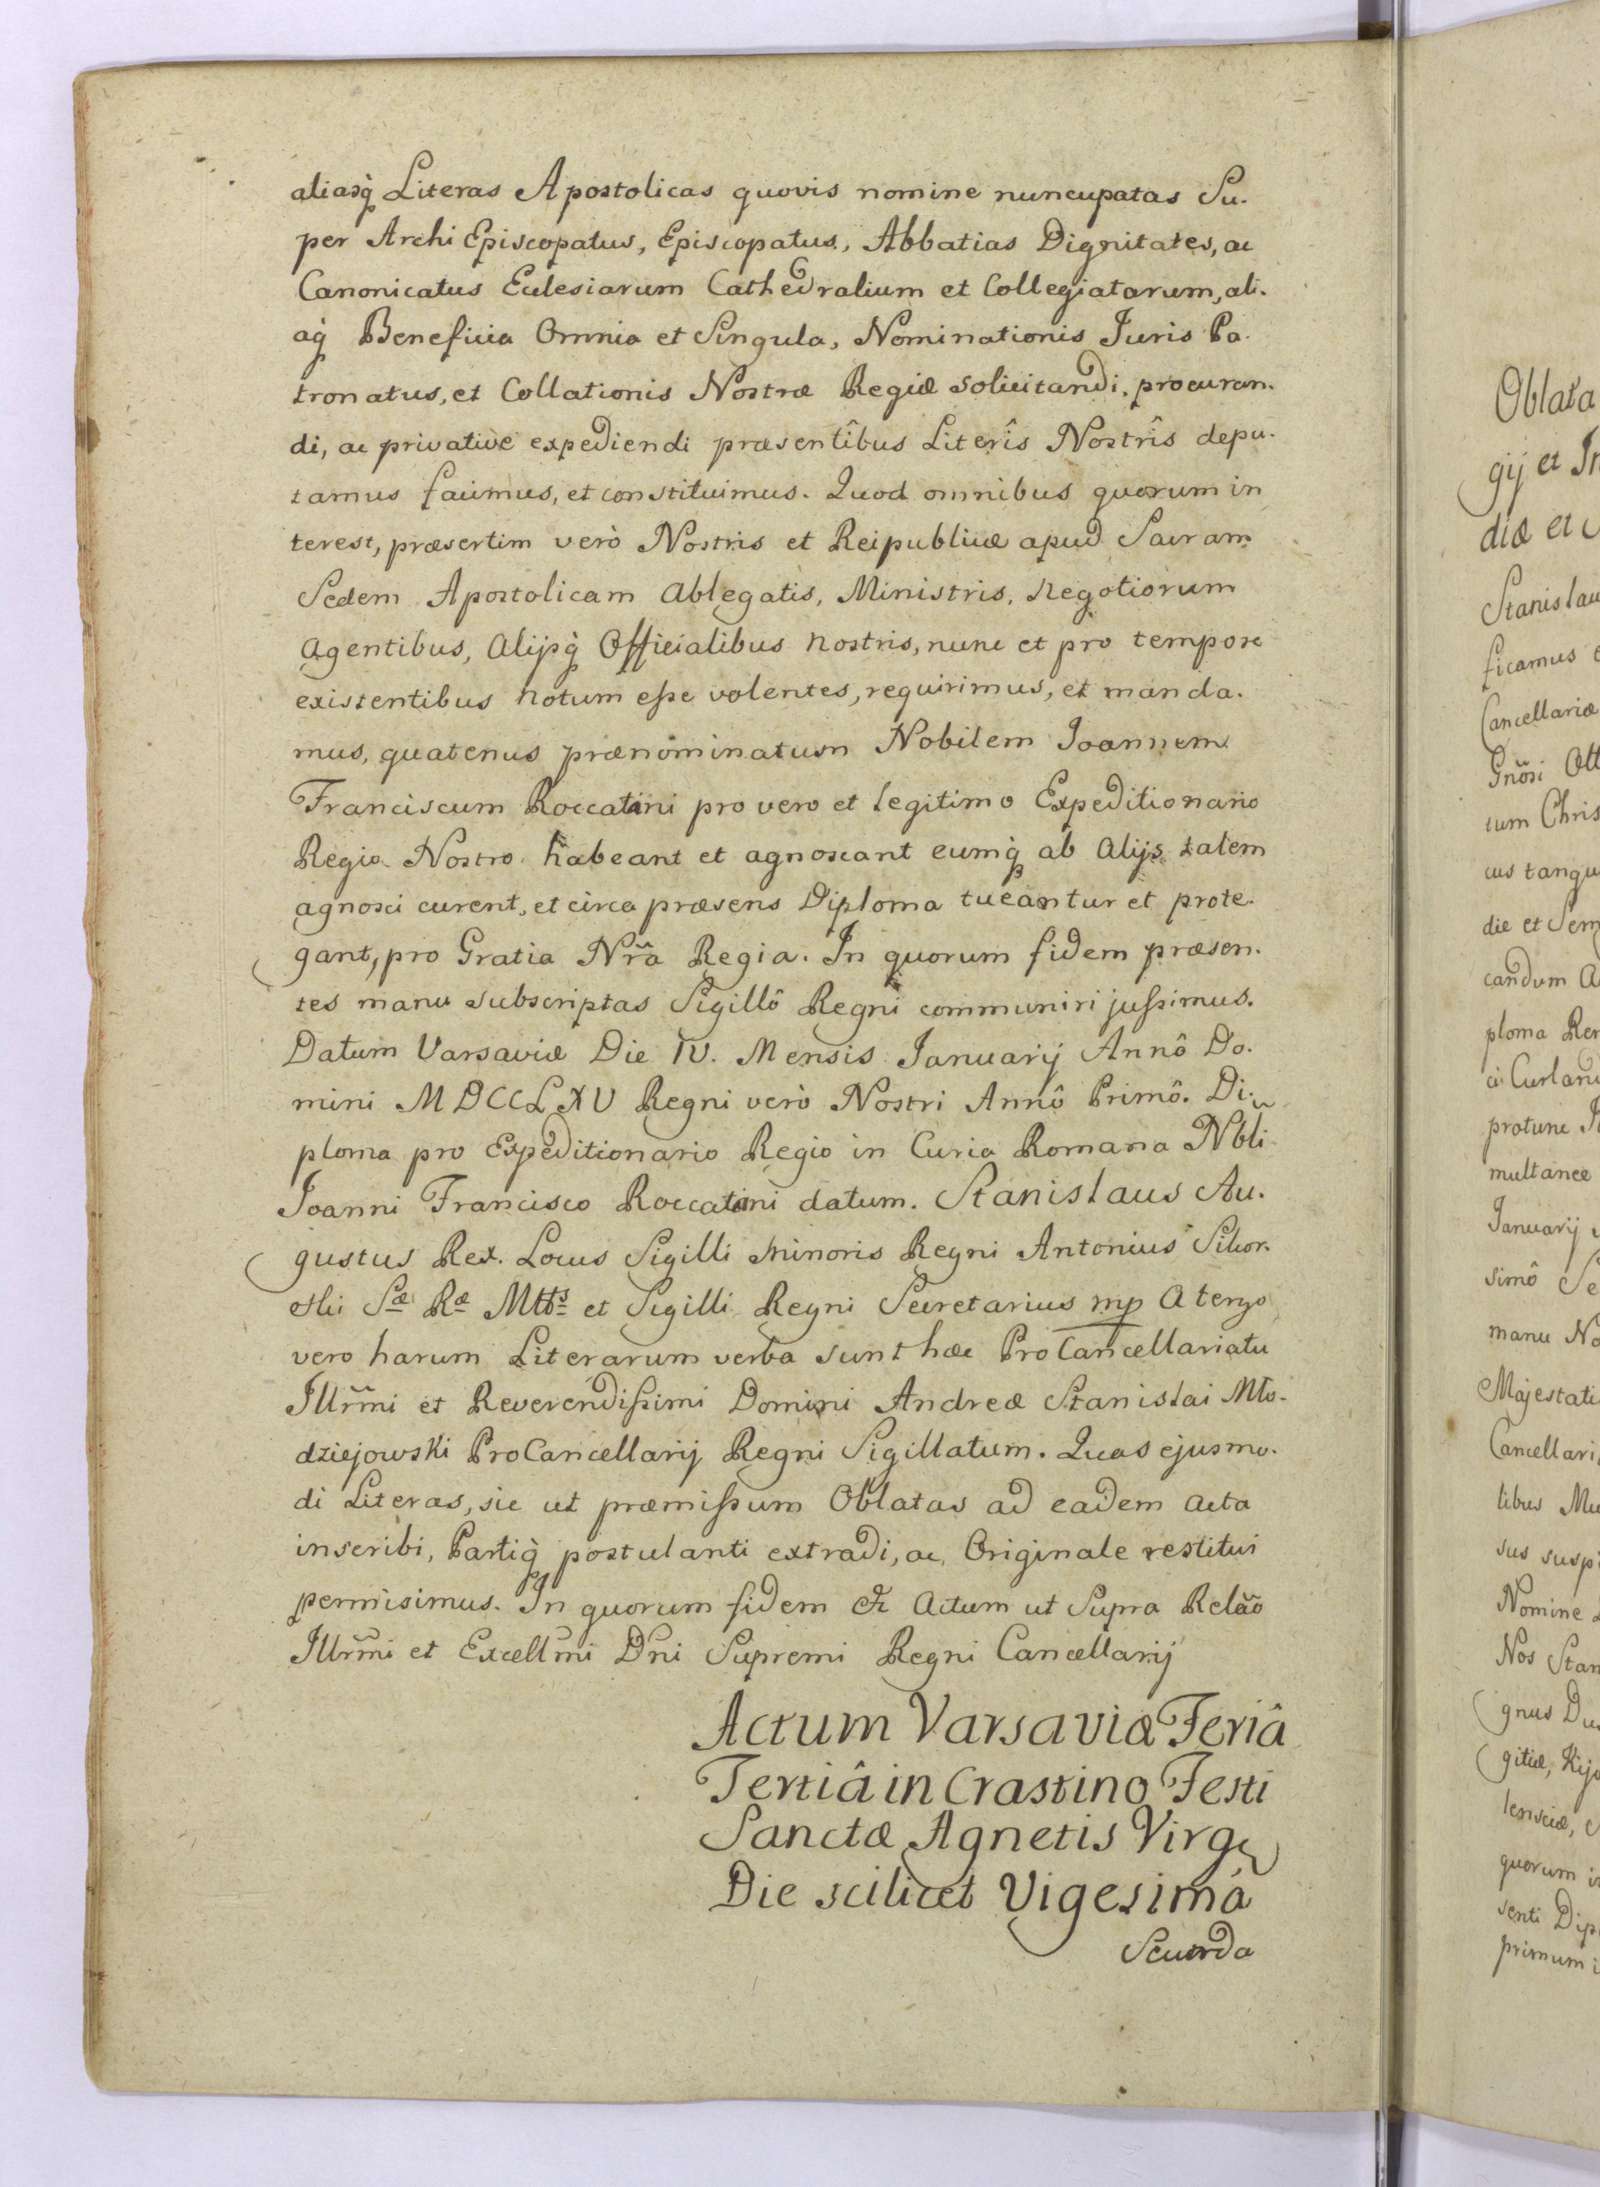 aliasq̀ Literas Apostolicas quovis nomine nuncupatas Su-
per Archi Episcopatus, Episcopatus, Abbatias Dignitates, ac
Canonicatus Eclesiarum Cathedralium et Collegiatarum, ali-
aq̀ Beneficia Omnia et Singula, Nominationis Juris Pa-
tronatus, et Collationis Nostræ Regiæ solicitandi, procuran-
di, ac privative expediendi præsentîbus Literîs Nostrîs depu-
tamus facimus, et constituimus. Quod omnibus quorum in
terest, præsertim verò Nostris et Reipublicæ apud Sacram
Sedem Apostolicam Ablegatis, Ministris, Negotiorum
Agentibus, Alijsq̀ Officialibus Nostris, nunc et pro tempore
existentibus Notum eſse volentes, requirimus, et manda-
mus, quatenus prænominatum Nobilem Joannem
Franciscum Roccatini pro vero et legitimo Expeditionario
Regio Nostro habeant et agnoscant eumq̀ ab Alijs talem
agnosci curent, et circa præsens Diploma tueantur et prote-
gant, pro Gratia Nr̃a Regia. In quorum fidem præsen-
tes manu subscriptas Sigillô Regni communiri juſsimus.
Datum Varsaviæ Die IV. Mensis Januarij Annô Do-
mini MDCCLXV Regni verò Nostri Annô Primô. Di-
ploma pro Expeditionario Regio in Curia Romana Nbl̃i
Joanni Francisco Roccatini datum. Stanislaus Au-
gustus Rex. Locus Sigilli Minoris Regni Antonius Sikor-
ski Sæ Ræ Mttis et Sigilli Regni Secretarius mp A tergo
vero harum Literarum verba sunt hæc ProCancellariatu
Illrm̃i et Reverendiſsimi Domini Andreæ Stanislai Mło-
dziejowski ProCancellarij Regni Sigillatum. Quas ejusmo-
di Literas, sic ut præmiſsum Oblatas ad eadem Acta
inscribi, Partiq̀ postulanti extradi, ac Originale restitui
permisimus. In quorum fidem &c Actum ut Supra Relão
Illrm̃i et Excellm̃i Dñi Supremi Regni Cancellarij
Actum Varsaviæ Feriâ
Tertiâ in Crastino Festi
Sanctæ Agnetis Virg:
Die scilicet Vigesimâ
Secunda
Oblata
gij et In
diæ et
Stanislau
ficamus
Cancellariæ
Gnõsi Ott
tum Chris
cus tanqu
die et Sem
candum A
ploma Rer
Curland
protunc
multanee
Januarij
simô Se
manu No
Majestati
Cancellari
libus Mu
sus susp
Nomine
Nos Stan
gnus Du
gitiæ, Kijo
lensciæ,
quorum in
senti Dip
primum i